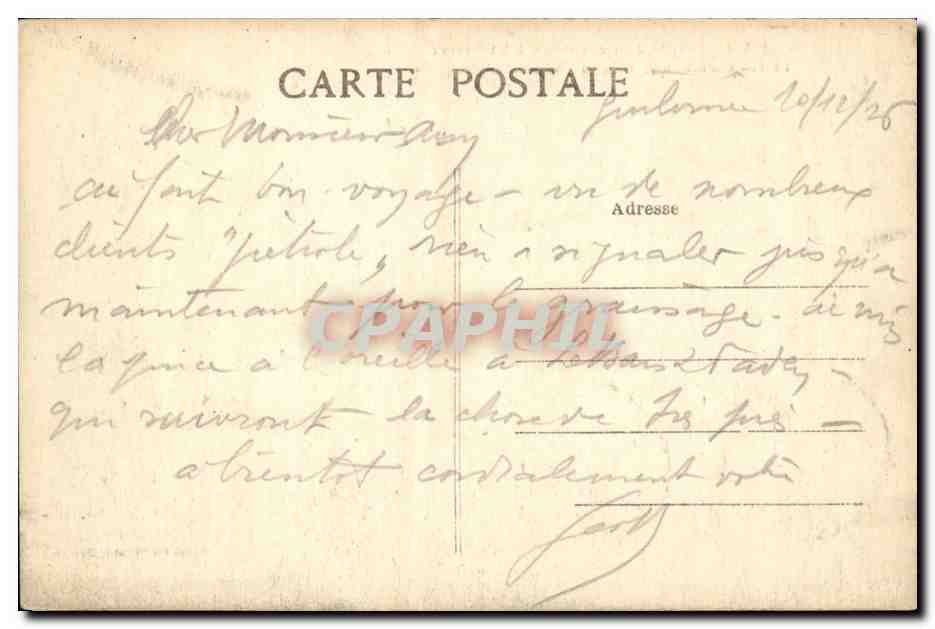 CARTE POSTALE
10/12/26
Cher Monsieur
ai fait bon voyage - vu de nombreux
Adresse
clients "pétrole", rien a signaler jusqu'a
maintenant pour le graissage - ai mis
CPAPHIL
la puce à l'oreille a
qui suivront la chose de très près -
a bientot cordialement votre